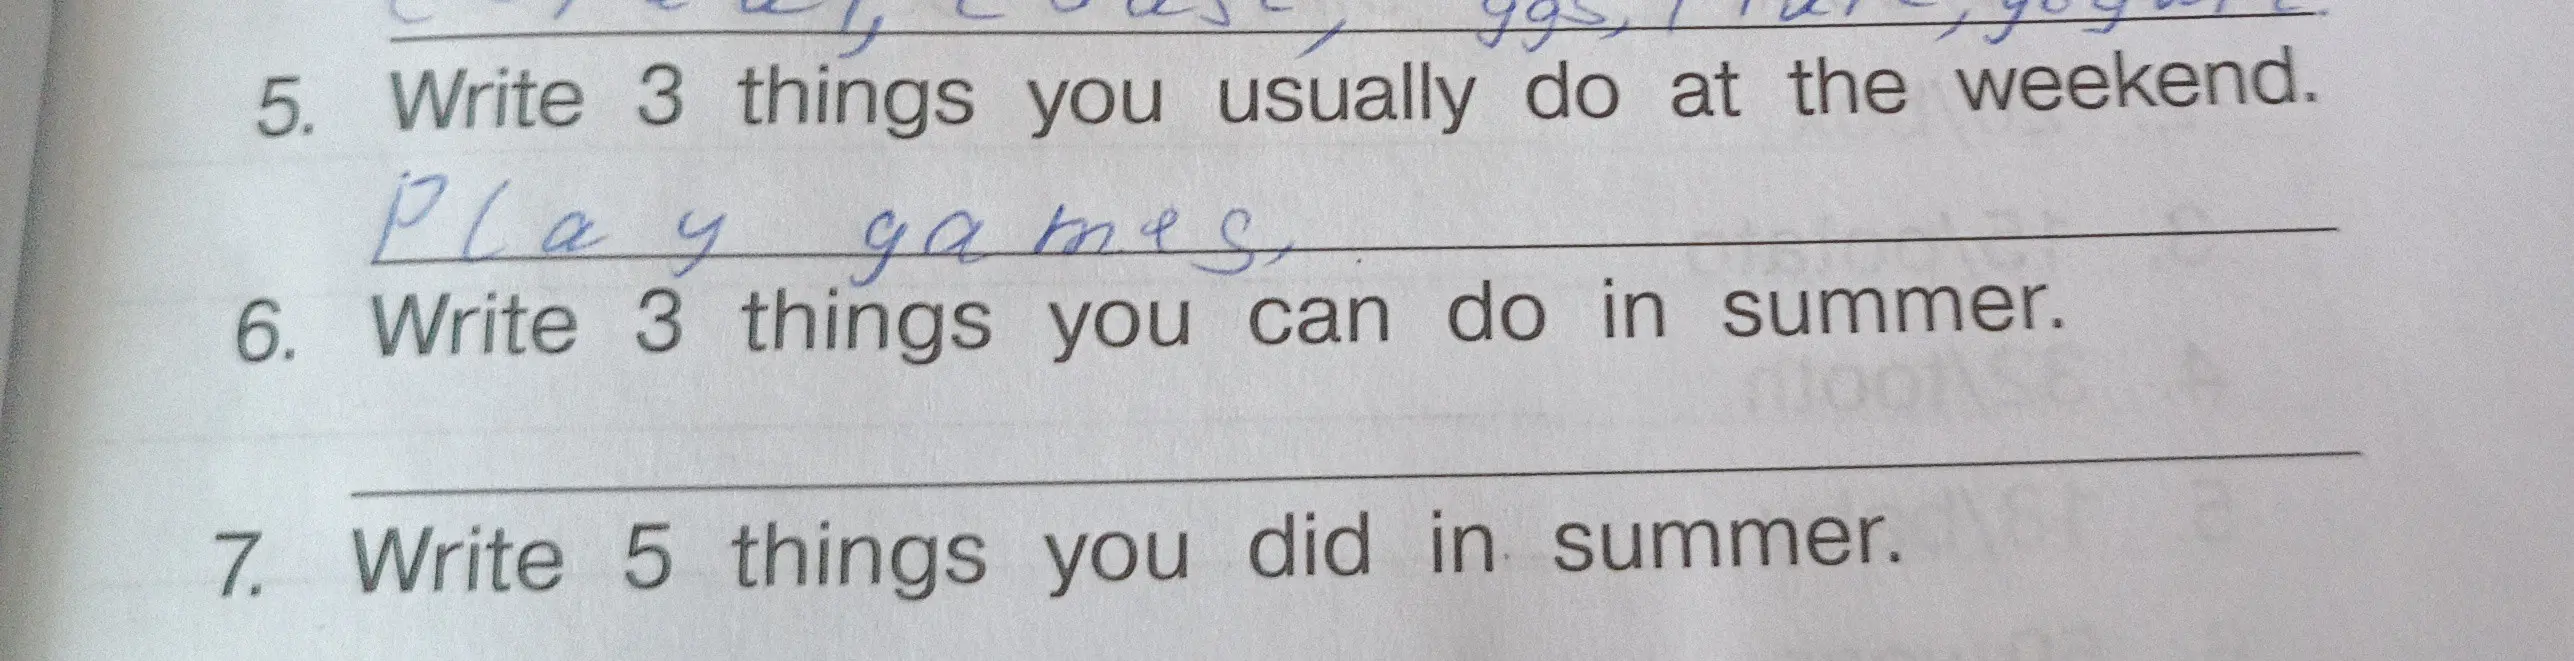 yogurt.
5. Write 3 things you usually do at the weekend.
Play games,
6. Write 3 things you can do in summer.
7. Write 5 things you did in summer.